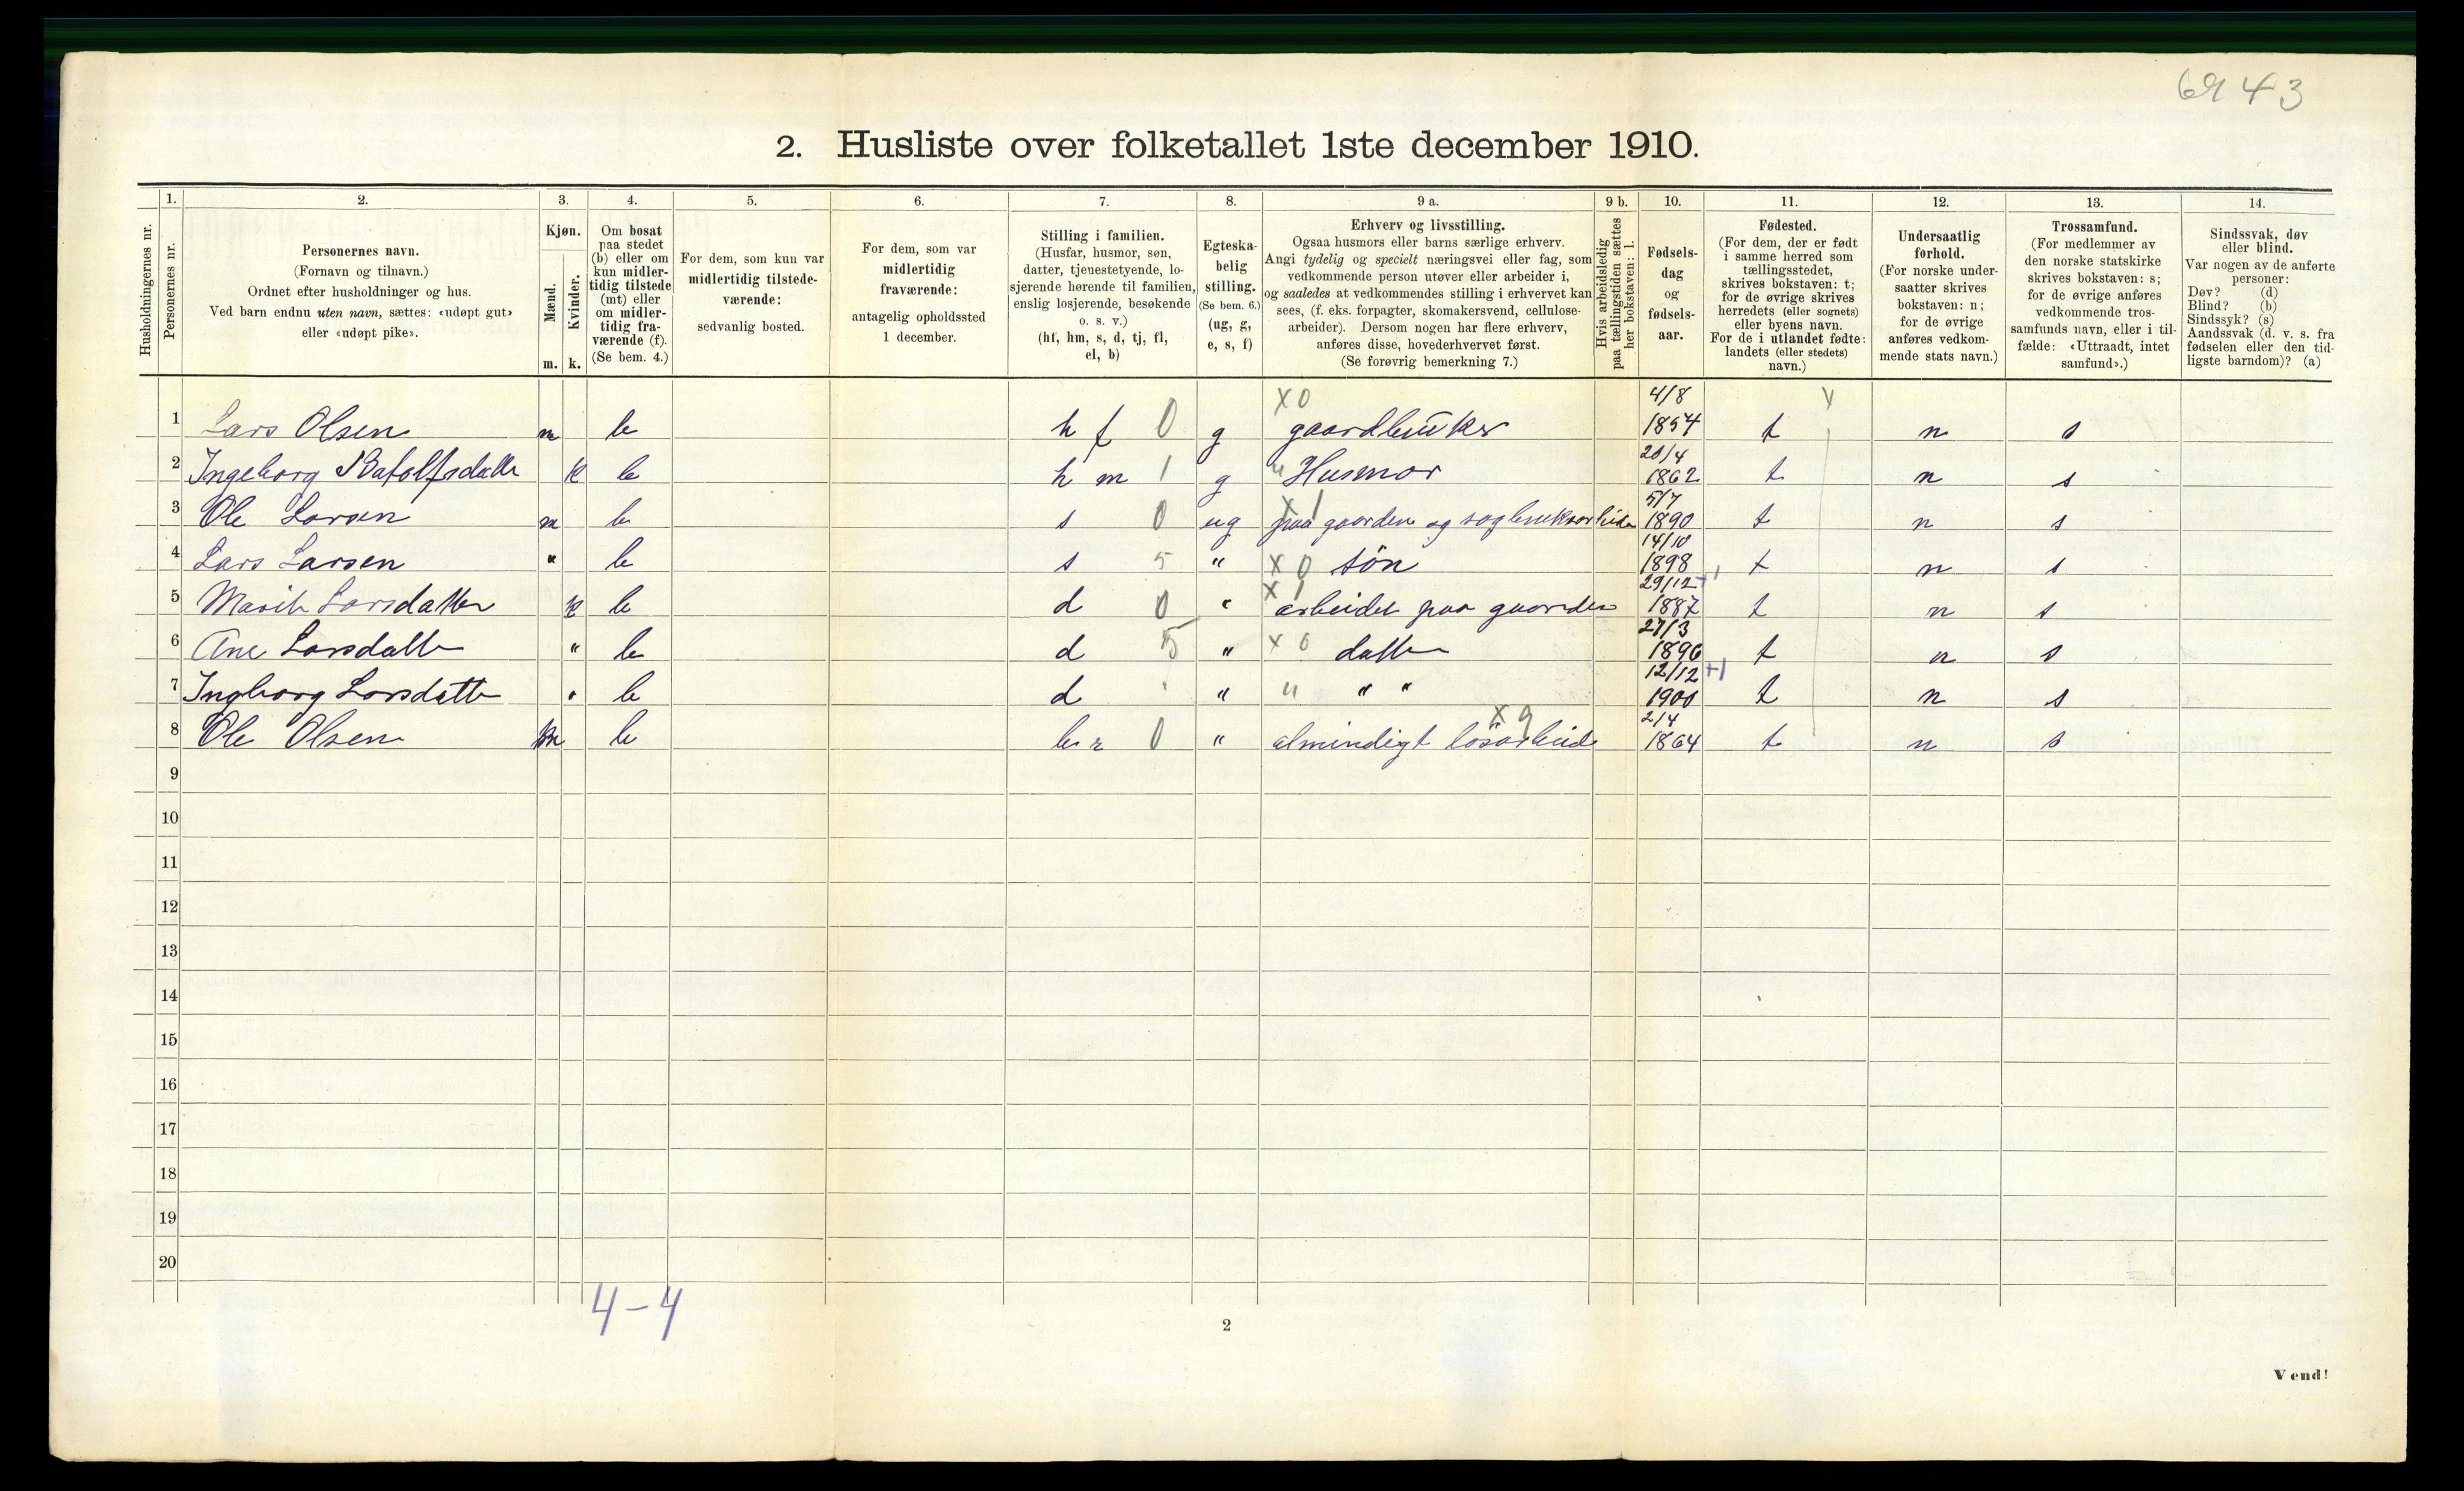 6943
2. Husliste over folketallet 1ste december 1910.
Husholdningernes nr.
1. Personernes nr.
2. Personernes navn. (Fornavn og tilnavn.) Ordnet efter husholdninger og hus. Ved barn endnu uten navn, sættes: «udøpt gut» eller «udøpt pike».
3. Kjøn. Mænd. m. Kvinder. k.
4. Om bosat paa stedet (b) eller om kun midlertidig tilstede (mt) eller om midlertidig fraværende (f). (Se bem. 4.)
5. For dem, som kun var midlertidig tilstedeværende: sedvanlig bosted.
6. For dem, som var midlertidig fraværende: antagelig opholdssted 1 december.
7. Stilling i familien. (Husfar, husmor, søn, datter, tjenestetyende, losjerende hørende til familien, enslig losjerende, besøkende o. s. v.) (hf, hm, s, d, tj, fl, el, b)
8. Egteskabelig stilling. (Se bem. 6.) (ug, g, e, s, f)
9 a. Erhverv og livsstilling. Ogsaa husmors eller barns særlige erhverv. Angi tydelig og specielt næringsvei eller fag, som vedkommende person utøver eller arbeider i, og saaledes at vedkommendes stilling i erhvervet kan sees, (f. eks. forpagter, skomakersvend, cellulosearbeider). Dersom nogen har flere erhverv, anføres disse, hovederhvervet først. (Se forøvrig bemerkning 7.)
9 b. Hvis arbeidsledig paa tællingstiden sættes her bokstaven: l.
10. Fødselsdag og fødselsaar.
11. Fødested. (For dem, der er født i samme herred som tællingsstedet, skrives bokstaven: t; for de øvrige skrives herredets (eller sognets) eller byens navn. For de i utlandet fødte: landets (eller stedets) navn.)
12. Undersaatlig forhold. (For norske undersaatter skrives bokstaven: n; for de øvrige anføres vedkommende stats navn.)
13. Trossamfund. (For medlemmer av den norske statskirke skrives bokstaven: s; for de øvrige anføres vedkommende trossamfunds navn, eller i tilfælde: «Uttraadt, intet samfund».)
14. Sindssvak, døv eller blind. Var nogen av de anførte personer: Døv? (d) Blind? (b) Sindssyk? (s) Aandssvak (d. v. s. fra fødselen eller den tidligste barndom)? (a)
1 Lars Olsen m b h f 0 g X 0 gaardbruker 4/8 1854 t n s
2 Ingeborg Batolfsdatter k b h m 1 g " Husmor 20/4 1862 t n s
3 Ole Larsen m b s 0 ug X 1 paa gaarden og sagbruksarbeide 5/7 1890 t n s
4 Lars Larsen " b s 5 " X 0 søn 14/10 1898 t n s
5 Marit Larsdatter k b d 0 " X 1 arbeidet paa gaarden 29/12 +1 1887 t n s
6 Ane Larsdatter " b d 5 " X 0 datter 27/3 1896 t n s
7 Ingborg Larsdatter " b d " " " " " 12/12 +1 1900 t n s
8 Ole Olsen m b br 0 " X 9 almindigt løsarbeide 2/4 1864 t n s
9
10
11
12
13
14
15
16
17
18
19
20
4-4
2
Vend!